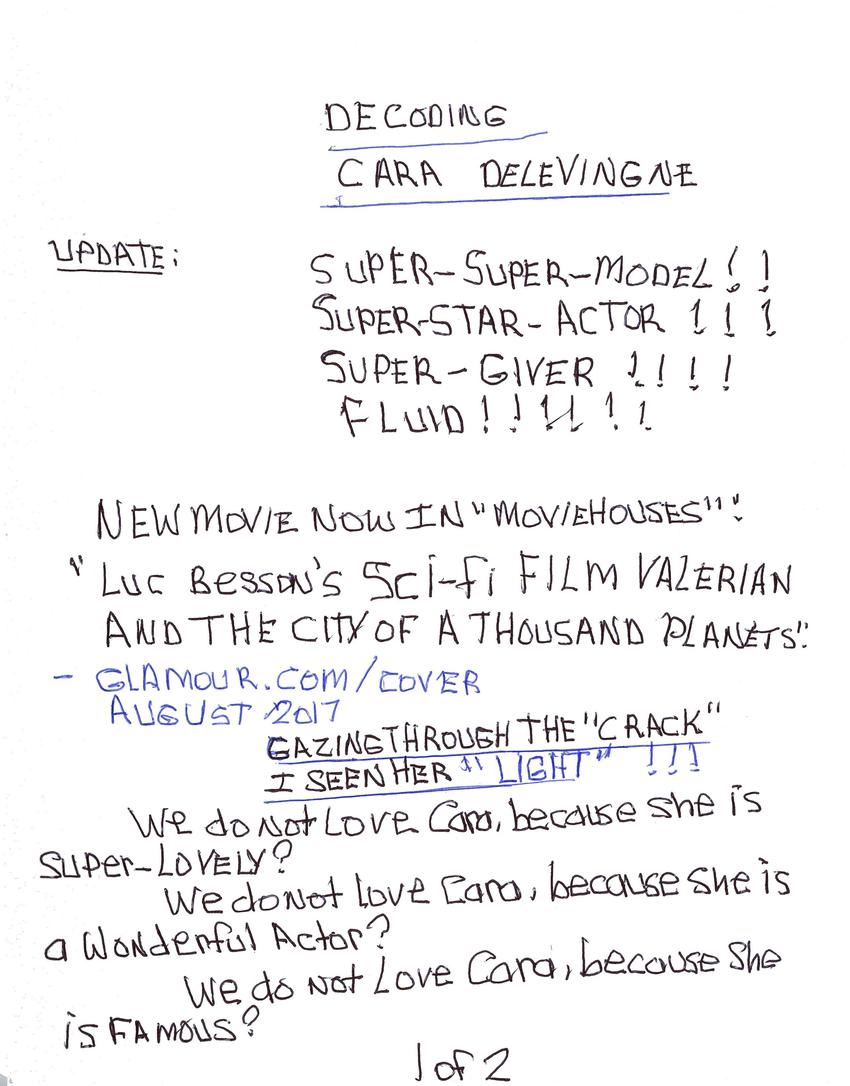 DECODING
CARA DELEVINGNE
UPDATE:
SUPER-SUPER-MODEL!!
SUPER-STAR-ACTOR !!!
SUPER-GIVER !!!!
FLUID!!!!!!
NEW MOVIE NOW IN "MOVIEHOUSES":
"LUC BESSON'S SCI-Fi FILM VALERIAN
AND THE CITY OF A THOUSAND PLANETS".
- GLAMOUR.COM/COVER
AUGUST 2017
GAZING THROUGH THE "CRACK"
I SEEN HER "LIGHT" !!!
We do Not LOVE Cara, because she is
SUPER-LOVELY?
We do Not Love Cara, because she is
a Wonderful Actor?
We do Not Love Cara, because She
is FAMOUS?
1 of 2